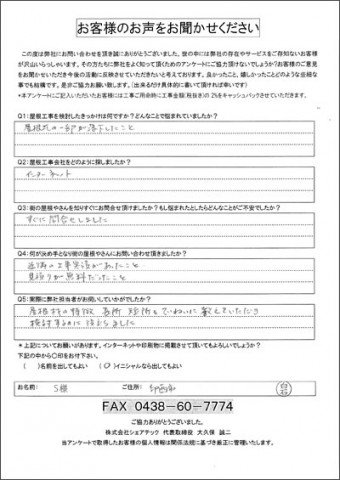 お客様のお声をお聞かせください
この度は弊社にお問い合わせを頂き誠にありがとうございました。世の中には弊社の存在やサービスをご存知ないお客様
が沢山いらっしゃいます。その方たちに弊社をよく知って頂くためのアンケートにご協力頂けないでしょうか？お客様のご意見
をお聞かせいただき今後の活動に反映させていただきたいと考えております。良かったこと、嬉しかったことどのような些細な
事でも結構です。是非ご協力お願い致します。(出来るだけ具体的に書いて頂ければ幸いです)
*本アンケートにご記入いただいたお客様には工事ご用命時に工事金額(税抜き)の 2%をキャッシュバックさせていただきます。
Q1:屋根工事を検討したきっかけは何ですか？どんなことで悩まれていましたか？
屋根瓦の一部が落下したこと
Q2:屋根工事会社をどのように探しましたか？
インターネット
Q3:街の屋根やさんを知りすぐにお問合せ頂けましたか？もし悩まれたとしたらどんなことがご不安でしたか？
すぐに問合せしました
Q4:何が決め手となり街の屋根やさんにお問い合わせ頂きましたか？
近隣の工事実績があったこと
見積りが無料だったこと
Q5:実際に弊社担当者がお伺いしていかがでしたか？
屋根材の特徴、長所 短所もていねいに教えていただき
検討するのに役立ちました
* 上記についてお願いがあります。インターネットや印刷物に掲載させて頂いてもよろしいでしょうか？
下記の中から〇印をお付下さい。
( )名前を出してもよい (〇)イニシャルなら出してもよい
お名前: S様 ご住所: 印西市 白石
FAX 0438-60-7774
ご協力ありがとうございました。
株式会社シェアテック 代表取締役 大久保 誠二
当アンケートで取得したお客様の個人情報は関係法規に基づき厳正に管理いたします。